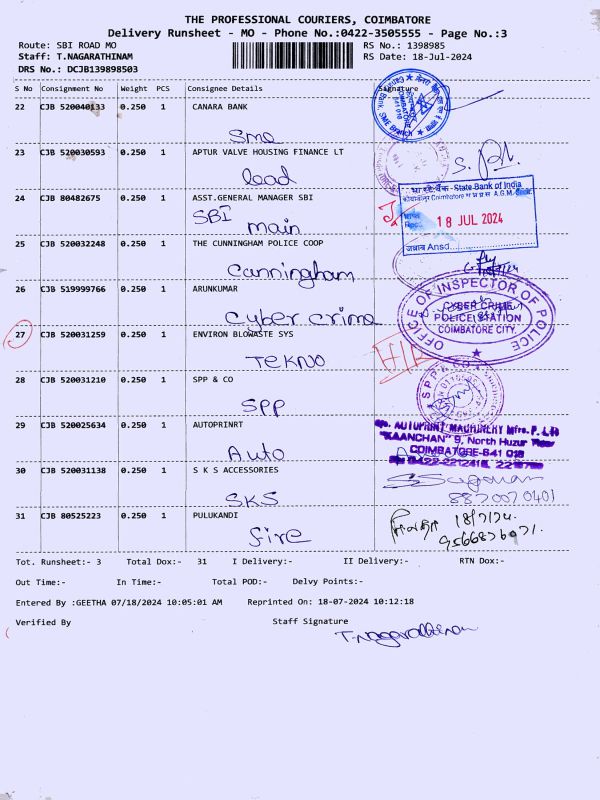 THE PROFESSIONAL COURIERS, COIMBATORE
Delivery Runsheet - MO - Phone No.:0422-3505555 - Page No.:3
Route: SBI ROAD MO RS No.: 1398985
Staff: T.NAGARATHINAM RS Date: 18-Jul-2024
DRS No.: DCJB139898503
S No Consignment No Weight PCS Consignee Details Signature
22 CJB 520040133 0.250 1 CANARA BANK
Sme
SME Branch
23 CJB 520030593 0.250 1 APTUR VALVE HOUSING FINANCE LT
lead
24 CJB 80482675 0.250 1 ASST.GENERAL MANAGER SBI
SBI main
State Bank of India
18 JUL 2024
25 CJB 520032248 0.250 1 THE CUNNINGHAM POLICE COOP
Cunningham
26 CJB 519999766 0.250 1 ARUNKUMAR
Cyber crime
OFFICE OF INSPECTOR OF POLICE
CYBER CRIME
POLICE STATION
COIMBATORE CITY.
27 CJB 520031259 0.250 1 ENVIRON BLOWASTE SYS
TEKNO
28 CJB 520031210 0.250 1 SPP & CO
SPP
SPP & CO
29 CJB 520025634 0.250 1 AUTOPRINRT
Auto
AUTOPRINT MACHINERY Mfrs. P. Ltd
"KAANCHAN" 9, North Huzur Road
COIMBATORE-641 018
30 CJB 520031138 0.250 1 S K S ACCESSORIES
SKS
8870070401
31 CJB 80525223 0.250 1 PULUKANDI
fire
18/7/24.
Tot. Runsheet:- 3 Total Dox:- 31 I Delivery:- II Delivery:- RTN Dox:-
Out Time:- In Time:- Total POD:- Delvy Points:-
Entered By :GEETHA 07/18/2024 10:05:01 AM Reprinted On: 18-07-2024 10:12:18
Verified By Staff Signature
T.Nagarathinam